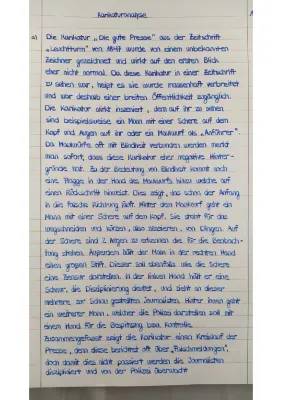 Karikaturanalyse
a) Die Karikatur „Die gute Presse" aus der Zeitschrift
„Leuchtturm" von 1847 wurde von einem unbekannten
Zeichner gezeichnet und wirkt auf den ersten Blick
eher nicht normal. Da diese Karikatur in einer Zeitschrift
zu sehen war, heißt es sie wurde massenhaft verbreitet
und war deshalb einer breiten Öffentlichkeit zugänglich.
Die Karikatur wirkt inszeniert, denn auf ihr zu sehen
sind beispielsweise ein Mann mit einer Schere auf dem
Kopf und Augen auf ihr oder ein Maulwurf als „Anführer".
Da Maulwürfe oft mit Blindheit verbunden werden merkt
man sofort, dass diese Karikatur eher negative Hinter-
gründe hat. Zu der Bedeutung von Blindheit kommt noch
eine Flagge in der Hand des Maulwurfs hinzu welche auf
einen Rückschritt hinweist. Dies zeigt, das schon der Anfang
in die falsche Richtung läuft. Hinter dem Maulwurf geht ein
Mann mit einer Schere auf dem Kopf. Sie steht für das
wegschneiden und kürzen, also zensieren, von Dingen. Auf
der Schere sind 2 Augen zu erkennen die für die Beobach-
tung stehen. Außerdem hält der Mann in der rechten Hand
einen großen Stift. Dieser soll ebenfalls wie die Schere
eine Zensur darstellen. In der linken Hand hält er eine
Schnur, die Disziplinierung deutet, und zieht an dieser
mehrere zur Schau gestellten Journalisten. Hinter ihnen geht
ein weiterer Mann, welcher die Polizei darstellen soll mit
einem Hund für die Bespitzlung bzw. Kontrolle.
Zusammengefasst zeigt die Karikatur einen Kreislauf der
Presse, denn diese berichtet oft über „Falschmeldungen",
doch damit dies nicht passiert werden die Journalisten
diszipliniert und von der Polizei überwacht